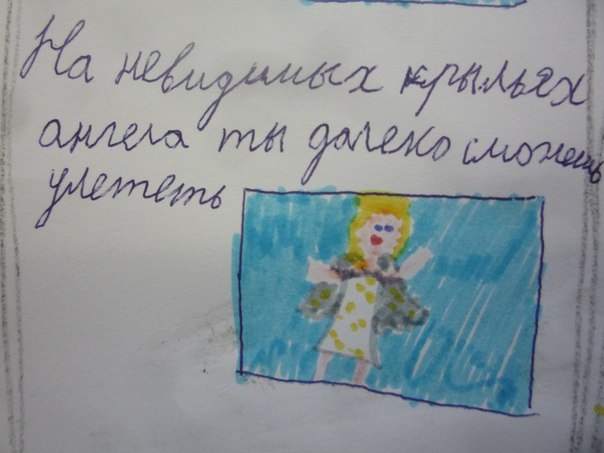 На невидимых крыльях
ангела ты далеко сможешь
улететь